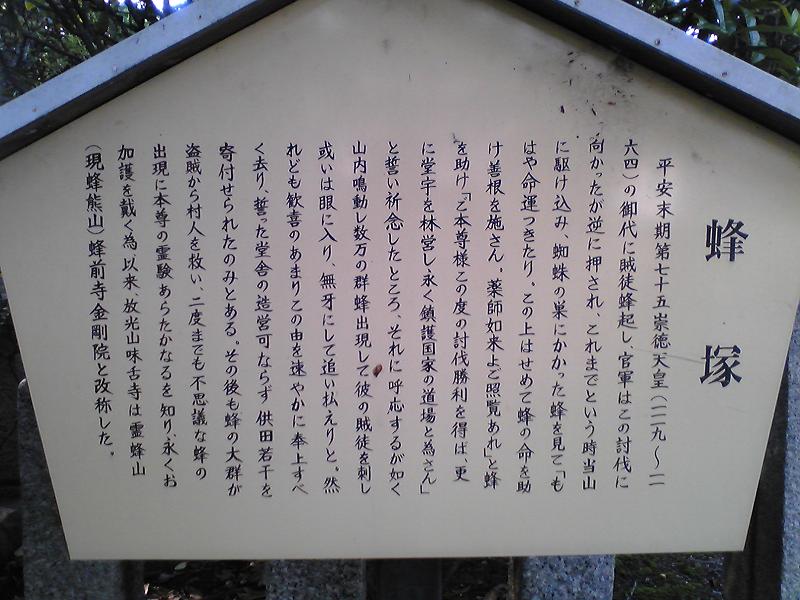 蜂塚
平安末期第七十五崇徳天皇（一一二九～一一
六四）の御代に賊徒蜂起し、官軍はこの討伐に
向かったが逆に押され、これまでという時当山
に駆け込み、蜘蛛の巣にかかった蜂を見て「も
はや命運つきたり。この上はせめて蜂の命を助
け善根を施さん。薬師如来よご照覧あれ」と蜂
を助け「乞本尊様この度の討伐勝利を得ば、更
に堂宇を林営し、永く鎮護国家の道場と為さん」
と誓い祈念したところ、それに呼応するが如く
山内鳴動し数万の群蜂出現して彼の賊徒を刺し
或いは眼に入り、無牙にして追い払えりと。然
れども歓喜のあまりこの由を速やかに奉上すべ
く去り、誓った堂舎の造営可ならず、供田若干を
寄付せられたのみとある。その後も蜂の大群が
盗賊から村人を救い、二度までも不思議な蜂の
出現に本尊の霊験あらたかなるを知り、永くお
加護を戴く為、以来、放光山味舌寺は霊蜂山
（現蜂熊山）蜂前寺金剛院と改称した。